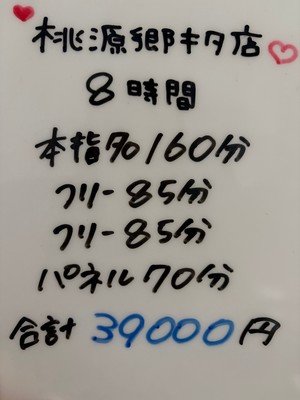 桃源郷キタ店
8時間
本指名160分
フリー85分
フリー85分
パネル70分
合計39000円